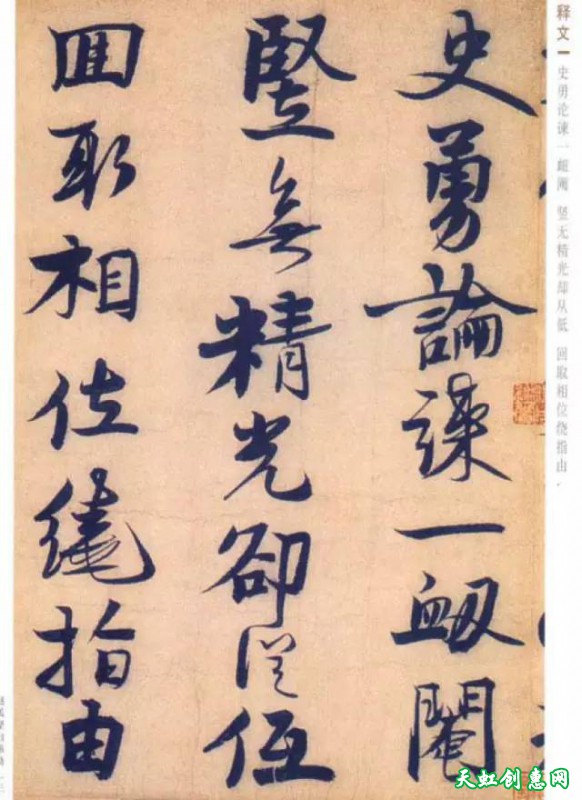 史勇論諫一衂閹
豎無精光卻從低
回取相位繞指由
释文一 史勇论谏一衄阉 竖无精光却从低 回取相位绕指由
天虹创惠网